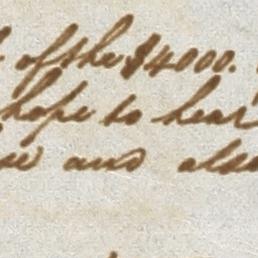 of the $4000.
hope to hear
and also